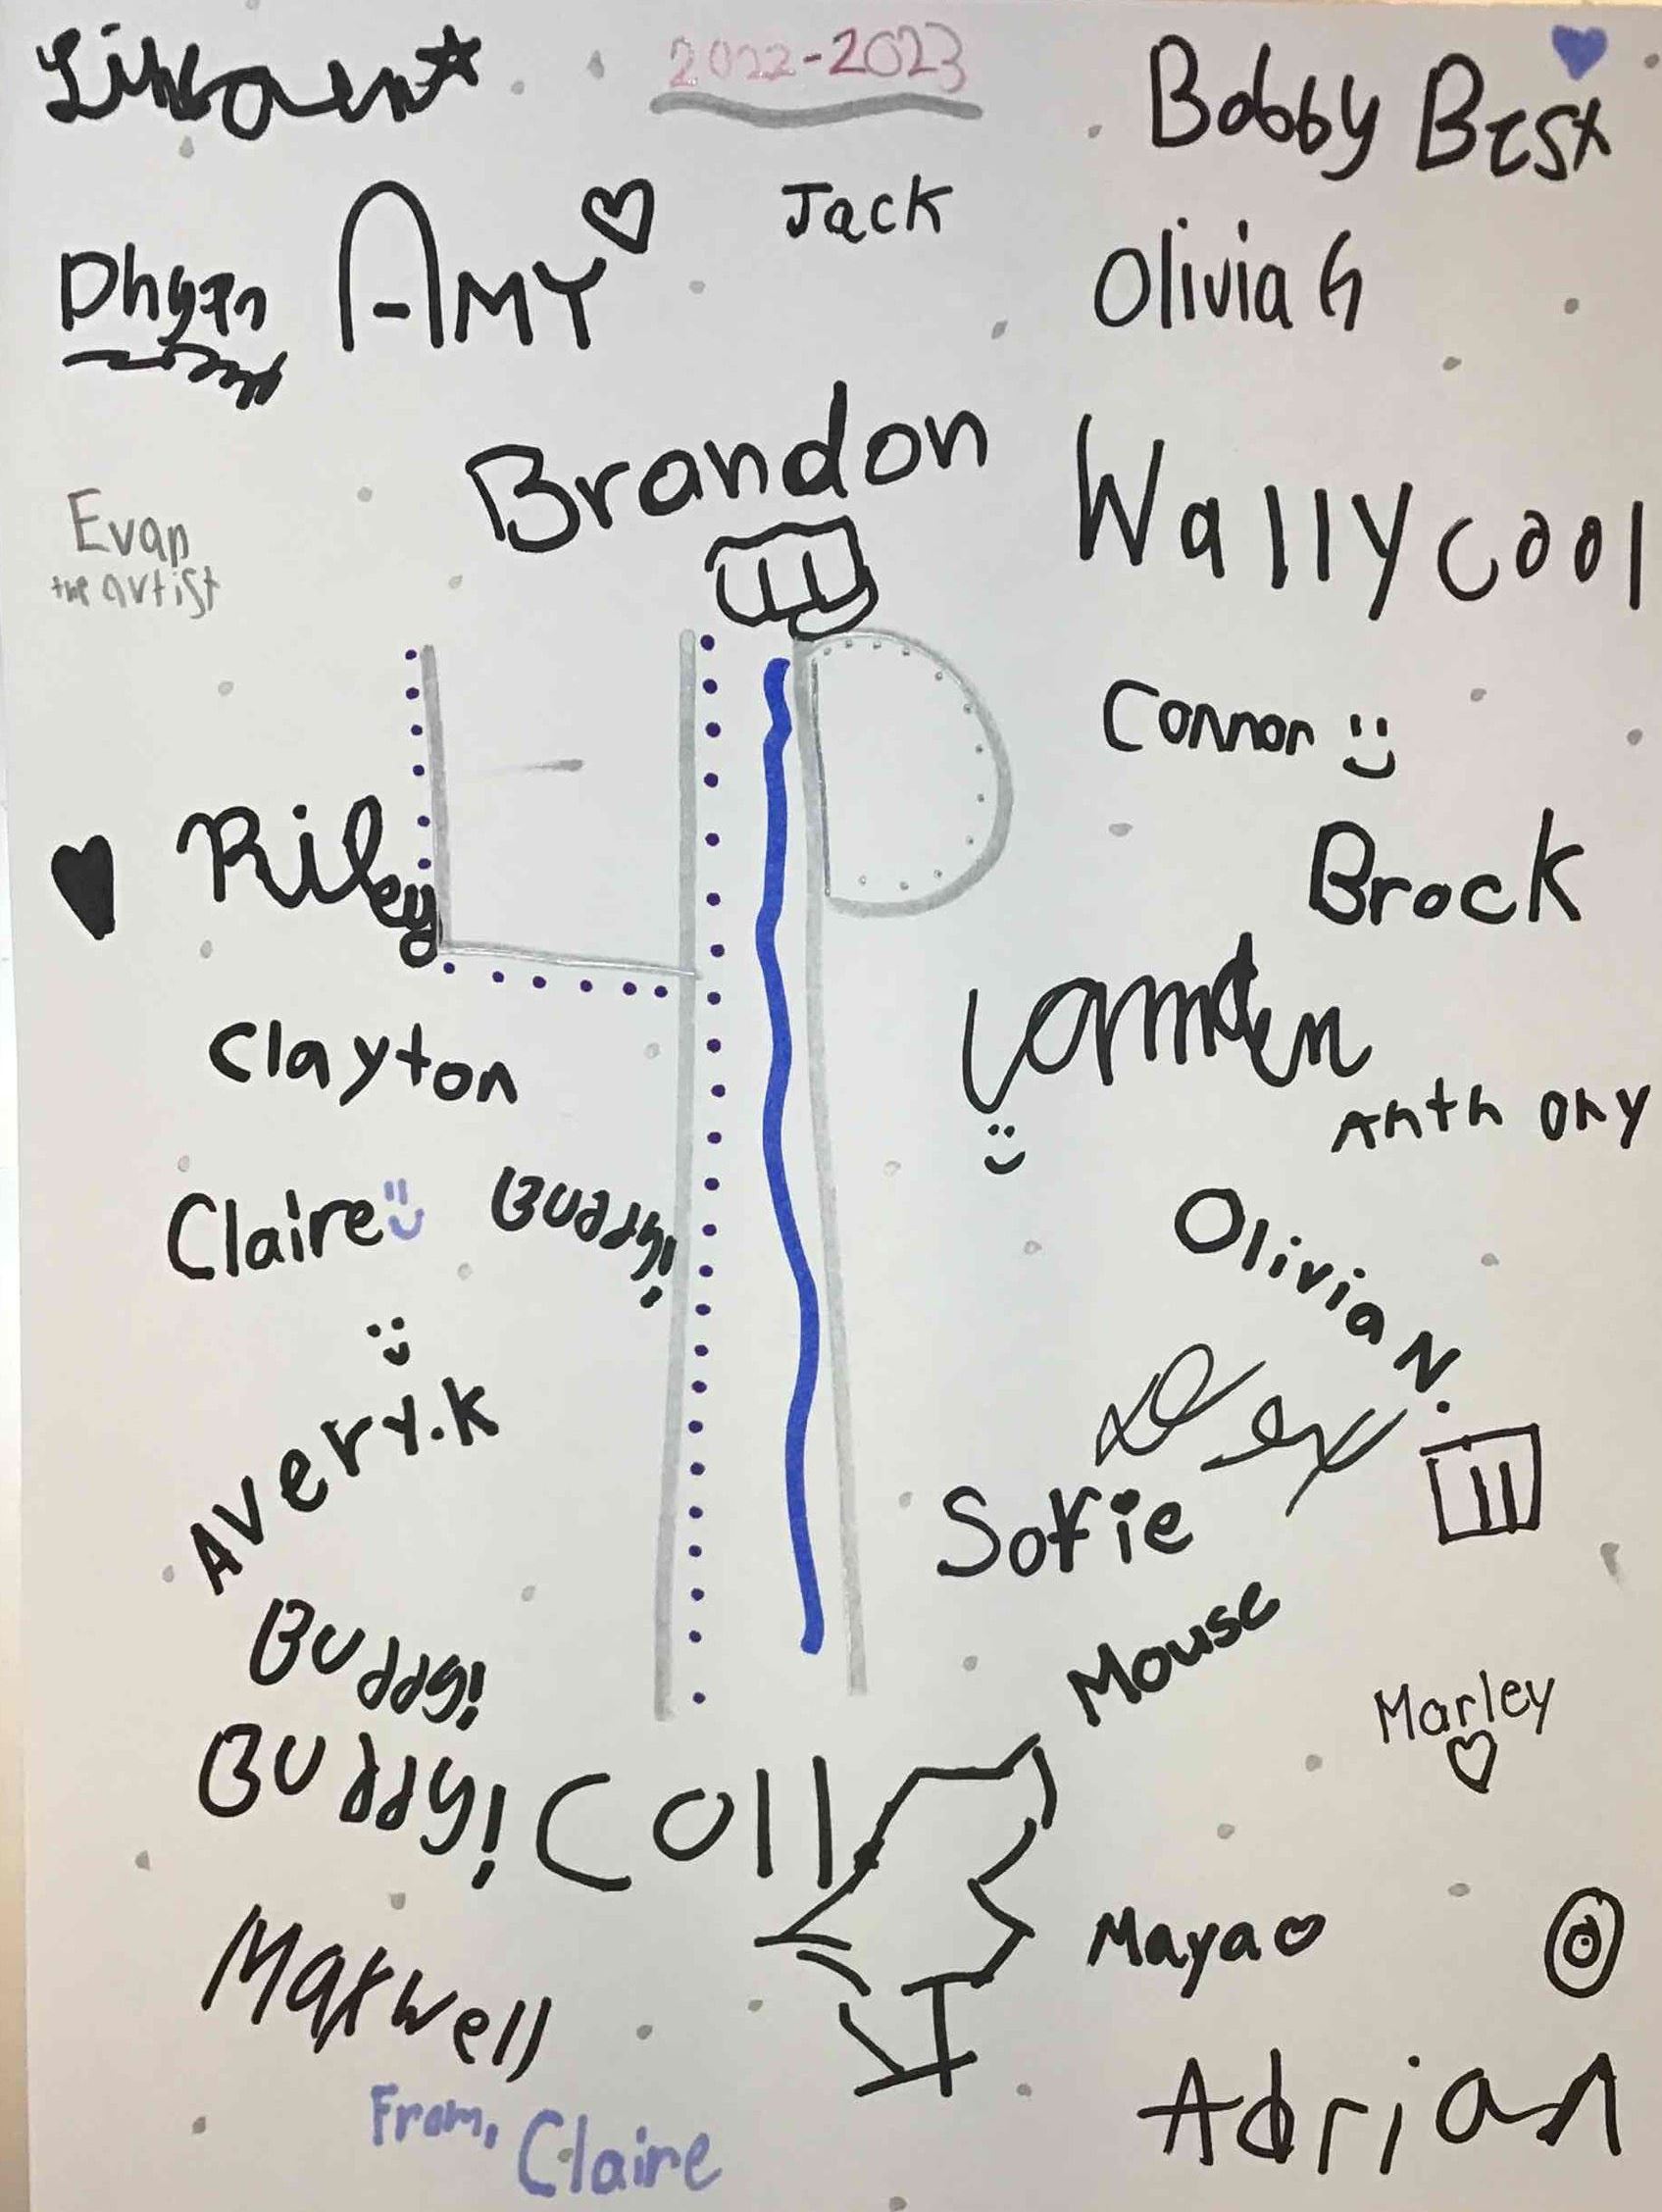 2022-2023
Lincoln
Bobby Best
Jack
Dhyan
AMY
Olivia G
Brandon
Wally cool
Evan
the artist
4P
Connor
Riley
Brock
Camden
Clayton
Anthony
Claire
Buddy!
Olivia N.
Avery.K
Sofie
Mouse
Buddy!
Marley
Buddy!
Coll
Maya
Maxwell
Adrian
From, Claire